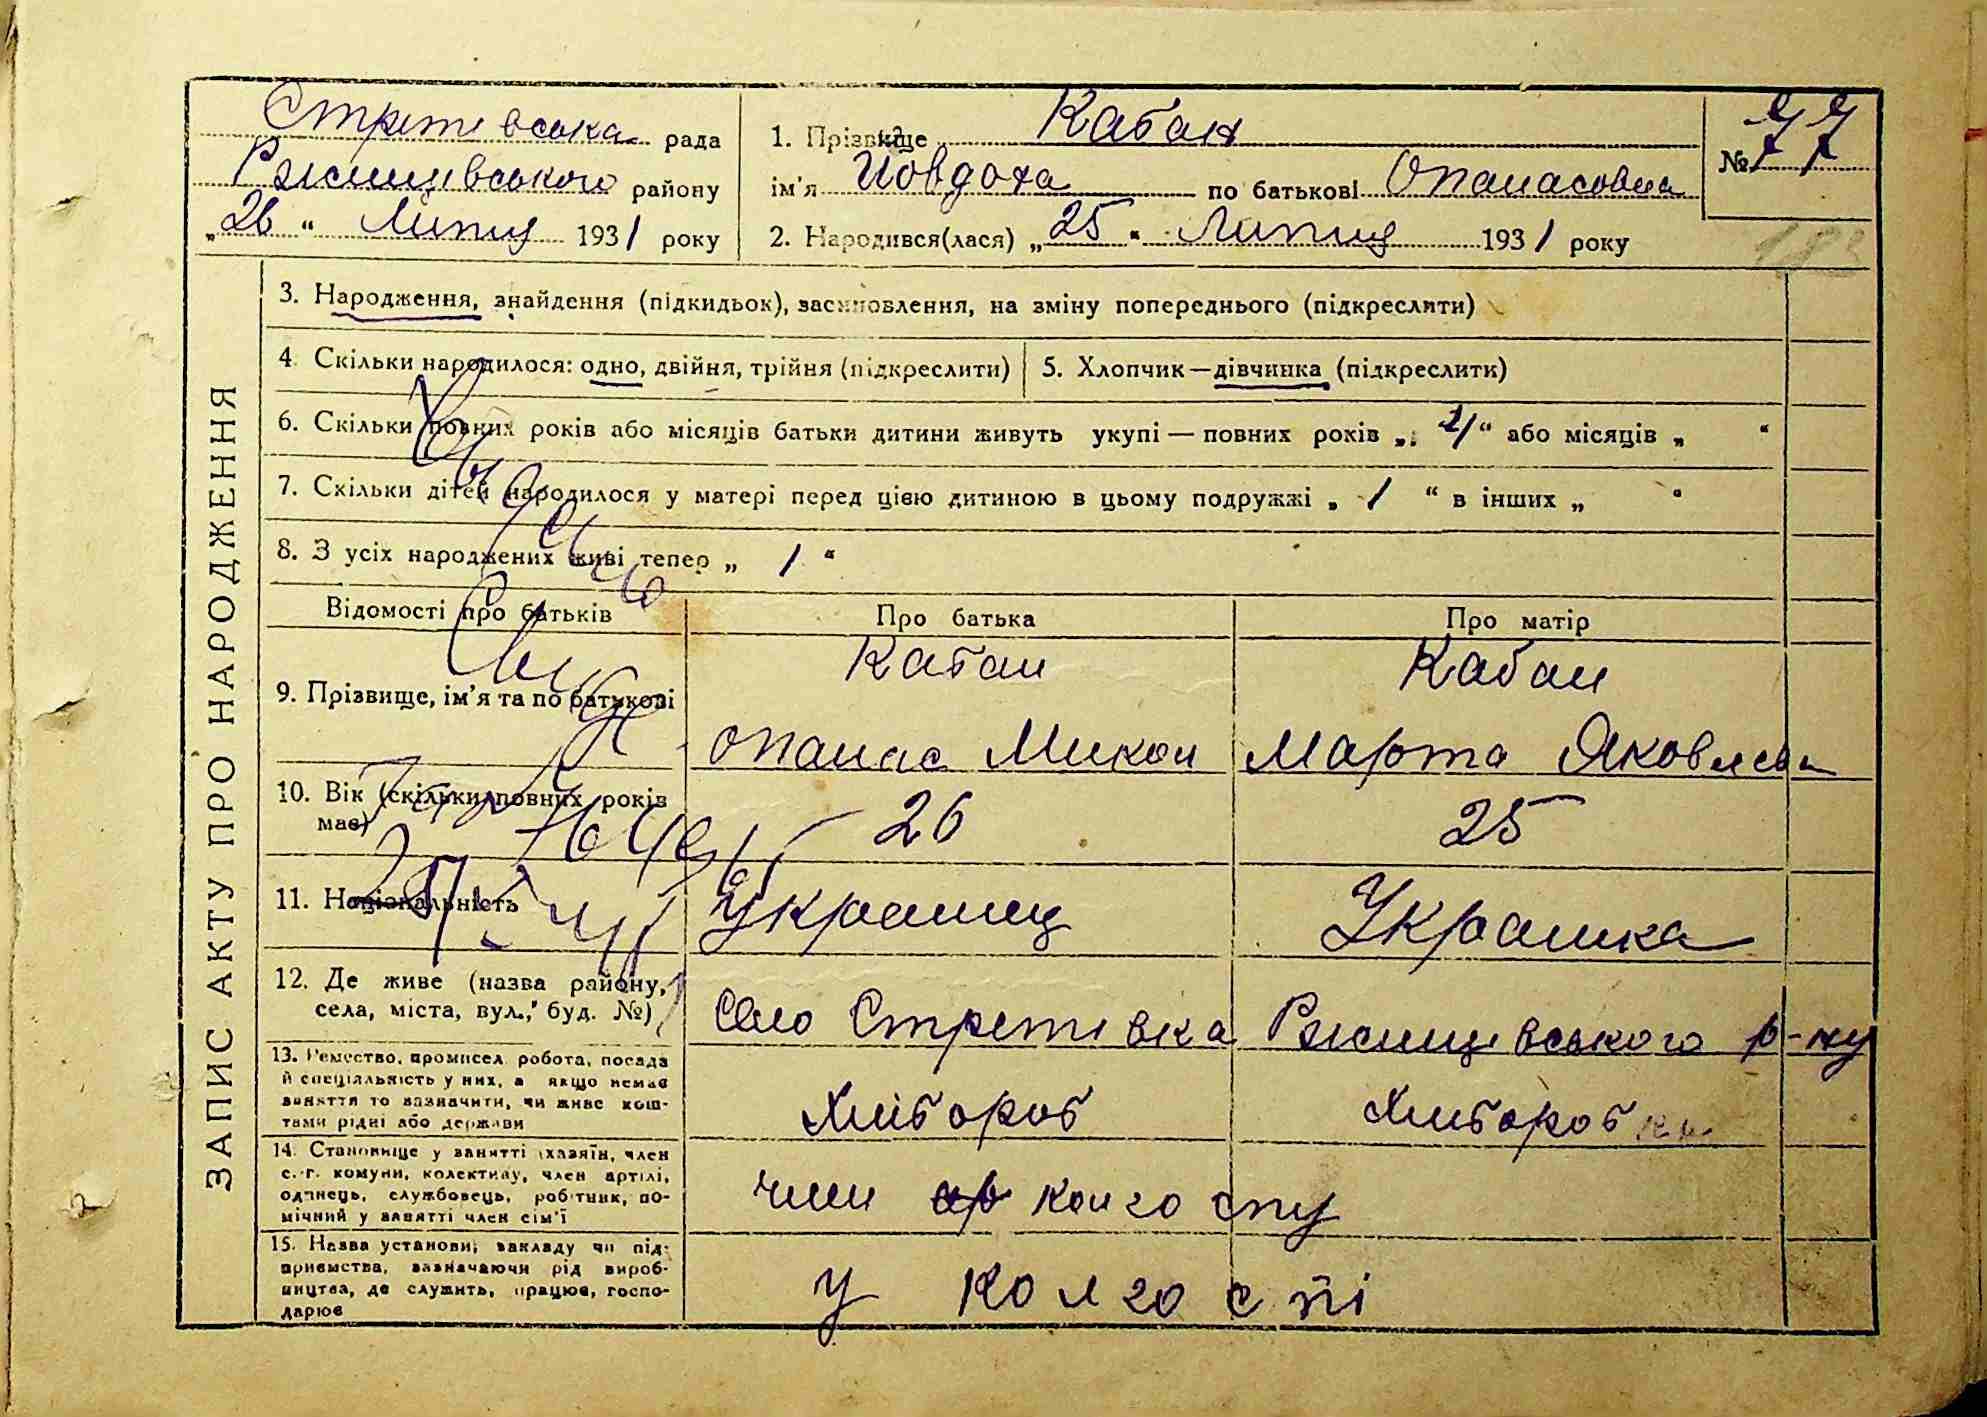 Стретівська рада
Ржищівського району
„26“ Липця 1931 року
1. Прізвище Кабан
ім'я Йовдоха по батькові Опанасовна
2. Народився(лася) „25“ Липця 1931 року
№ 77
183
ЗАПИС АКТУ ПРО НАРОДЖЕННЯ
3. Народження, знайдення (підкидьок), засиновлення, на зміну попереднього (підкреслити)
4. Скільки народилося: одно, двійня, трійня (підкреслити)
5. Хлопчик—дівчинка (підкреслити)
6. Скільки повних років або місяців батьки дитини живуть укупі — повних років „ 4 “ або місяців „ “
7. Скільки дітей народилося у матері перед цією дитиною в цьому подружжі „ 1 “ в інших „ “
8. З усіх народжених живі тепер „ 1 “
Відомості про батьків Про батька Про матір
Кабан Кабан
9. Прізвище, ім'я та по батькові
опанас Микол Марта Яковлевн
10. Вік (скільки повних років
має) 26 25
11. Національність Українец Українка
12. Де живе (назва району,
села, міста, вул., буд. №) село Стретівка Ржищівського р-ну
13. Ремество, промисел, робота, посада
й спеціяльність у них, а якщо немає
заняття то зазначити, чи живе кош-
тами рідні або держави
Хлібороб Хлібороб
14. Становище у занятті (хазяїн, член
с.-г. комуни, колективу, член артілі,
одинець, службовець, робітник, по-
мічний у занятті член сім'ї
член колгоспу
15. Назва установи, закладу чи під-
приємства, зазначаючи рід вироб-
ництва, де служить, працює, госпо-
дарює
у колгоспі